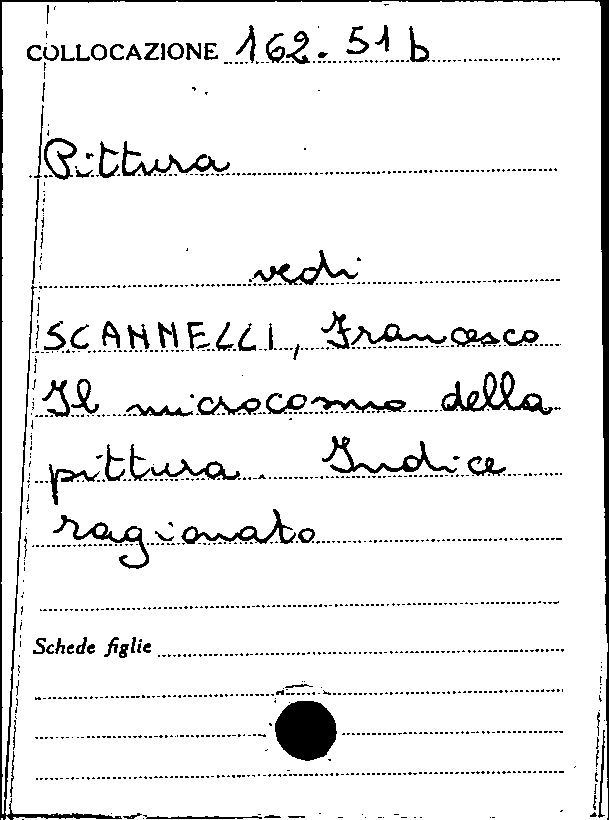 COLLOCAZIONE 162.51b
Pittura
vedi
SCANNELLI, Francesco
Il microcosmo della
pittura. Indice
ragionato
Schede figlie